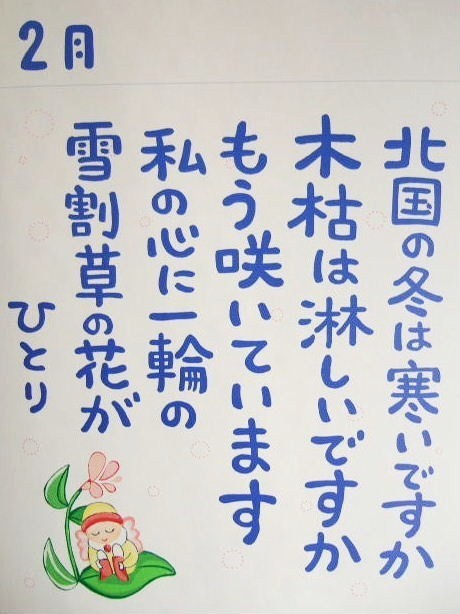 2月
北国の冬は寒いですか
木枯は淋しいですか
もう咲いています
私の心に一輪の
雪割草の花が
ひとり